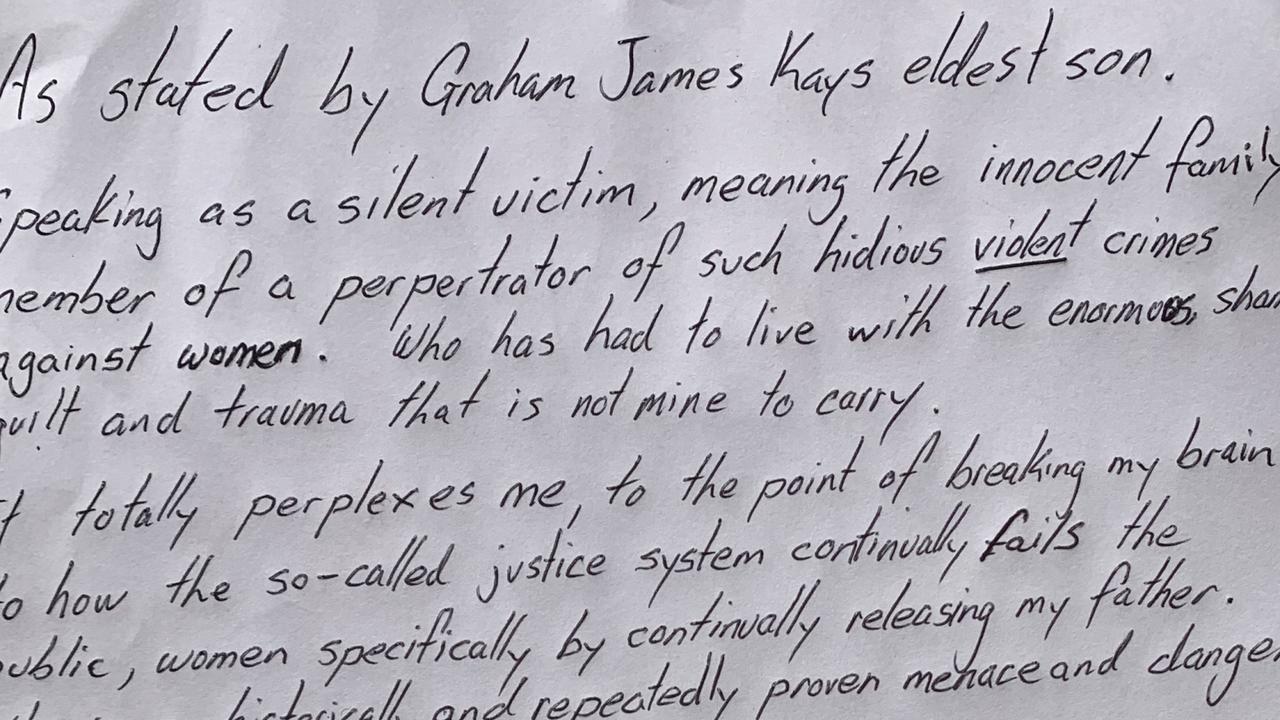 As stated by Graham James Kays eldest son.
Speaking as a silent victim, meaning the innocent family
member of a perpertrator of such hidious violent crimes
against women. Who has had to live with the enormous, sham
guilt and trauma that is not mine to carry.
It totally perplexes me, to the point of breaking my brain
to how the so-called justice system continually fails the
public, women specifically by continually releasing my father.
historically and repeatedly proven menace and danger